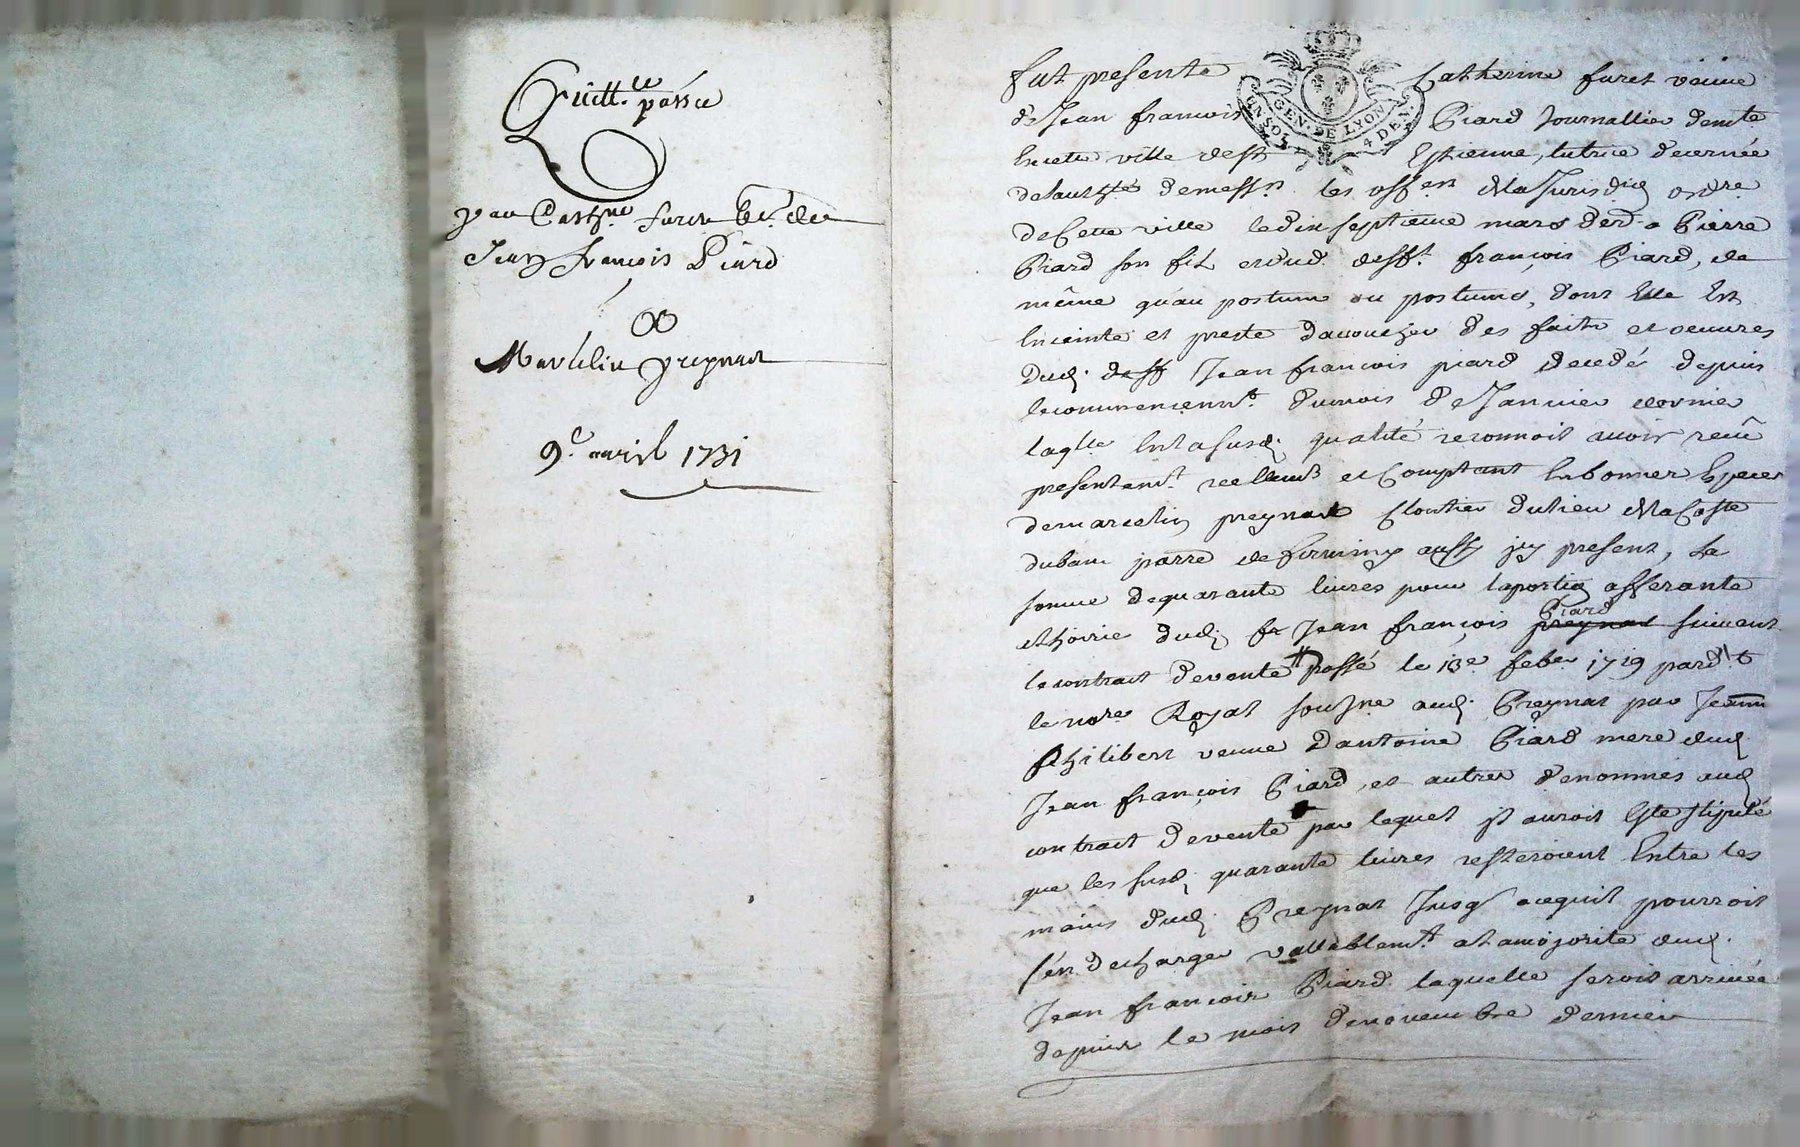 Quitt.ce passée
par Cath.ne furet v.e de
Jean françois Piard
a
Marcelin preynat
9.e avril 1731
GEN. DE LYON
UN SOL 4 DEN.
fut presente Catherine furet veuve
de Jean francois Piard Journallier dem.te
en cette ville de S.t Estienne, tutrice decernée
de lauth.té de mess.rs les off.ers de la Jurisd.on ord.re
de Cette ville le dix septieme mars der.r a Pierre
Piard son fils et dud. deff.t françois Piard, de
même qu'au postume ou postumes, dont Elle Est
Enceinte et preste d'acoucher des faits et oeuvres
dud. deff Jean francois piard decedé depuis
le commencem.t du mois de Janvier dernier
laq.lle En la susd. qualité reconnoit avoir receû
presentem.t reellem.t et Comptant En bonnes Especes
de marcelin preynat Cloutier du lieu de la Coste
dubanc parr.e de firminy aussy icy present, la
somme de quarante livres pour la portion afferante
et hoirie dud. fr Jean françois preynat Piard suivant
le contrat de vente passé le 13e feb.er 1719 pard.t
le no.re Royal sousne aud. Preynat par Jeanne
Philibert veuve d'antoine Piard mere dud.
Jean françois Piard, et autres denommés aud.
contrat de vente par lequel il auroit Esté stipulé
que les susd. quarante livres resteroient Entre les
mains dud. Preynat Jusq. acequil pourroit
s'en decharger vallablem.t a la majorite dud.
Jean francois Piard laquelle seroit arrivée
depuis le mois de novembre dernier